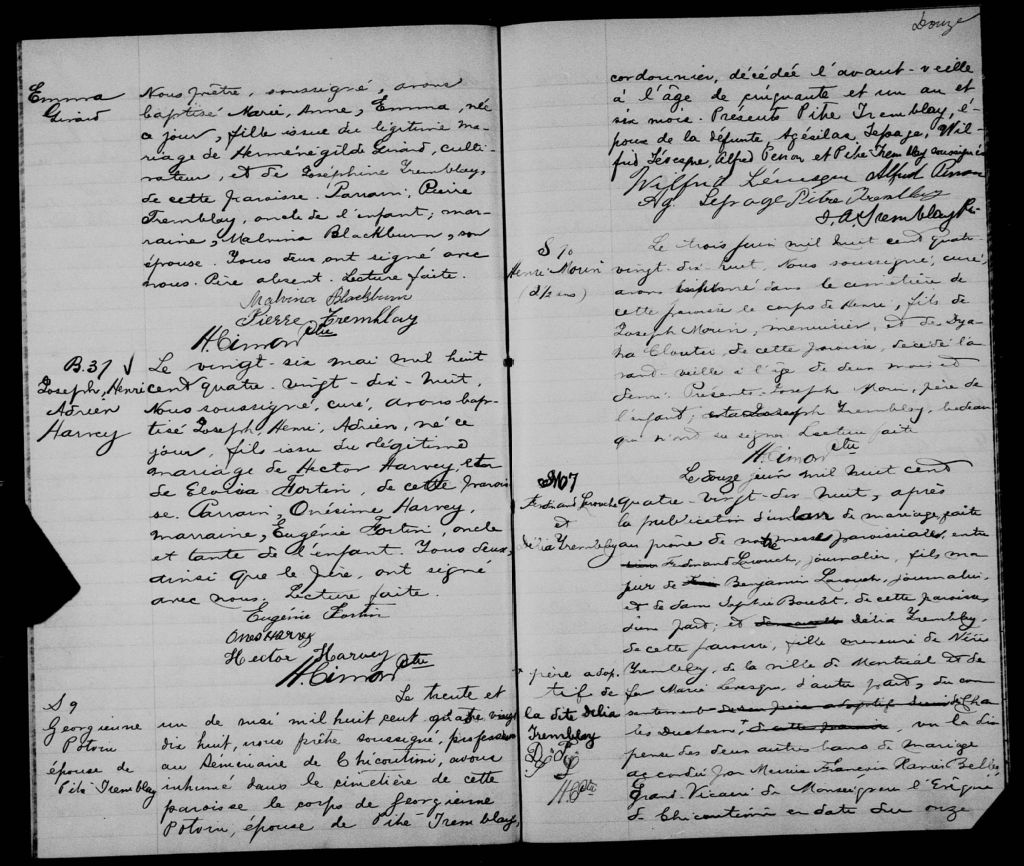 Emma
Girard
Nous prêtre, soussigné, avons
baptisé Marie, Anne, Emma, née
ce jour, fille issue du légitime ma-
riage de Herménégilde Girard, culti-
vateur, et de Joséphine Tremblay,
de cette paroisse. Parrain, Pierre
Tremblay, oncle de l'enfant; mar-
raine, Malvina Blackburn, son
épouse. Tous deux ont signé avec
nous. Père absent. Lecture faite.
Malvina Blackburn
Pierre Tremblay
H. Cimon Ptre
B. 37
Joseph, Henri
Adrien
Harvey
Le vingt-six mai mil huit
cent quatre-vingt-dix-huit,
Nous soussigné, curé, avons bap-
tisé Joseph, Henri, Adrien, né ce
jour, fils issu du légitime
mariage de Hector Harvey, et
de Eloïsa Fortin, de cette parois-
se. Parrain, Onésime Harvey,
marraine, Eugénie Fortin, oncle
et tante de l'enfant. Tous deux,
ainsi que le père, ont signé
avec nous. Lecture faite.
Eugénie Fortin
Ones Harvey
Hector Harvey
H. Cimon Ptre
S 9
Georgienne
Potvin
épouse de
Pite Tremblay
Le trente et
un de mai mil huit cent quatre vingt
dix huit, nous prêtre soussigné, professeur
au Séminaire de Chicoutimi, avons
inhumé dans le cimetière de cette
paroisse le corps de Georgienne
Potvin, épouse de Pite Tremblay,
Douze
cordonnier, décédée l'avant-veille
à l'âge de cinquante et un an et
six mois. Présents Pite Tremblay, é-
poux de la défunte, Agésilas Lepage, Wil-
frid Lévesque, Alfred Penon et Pitre Tremblay soussignés
Wilfrid Lévesque Alfred Penon
Ag. Lepage Pitre Tremblay
J. A. Tremblay Ptr
S 10
Henri Morin
(2½ ms)
Le trois juin mil huit cent quatre-
vingt-dix-huit, Nous soussigné, curé,
avons inhumé dans le cimetière de
cette paroisse le corps de Henri, fils de
Joseph Morin, menuisier, et de Dya-
na Cloutier, de cette paroisse, décédé l'a-
vant-veille à l'âge de deux mois et
demi. Présents Joseph Morin, père de
l'enfant; et Joseph Tremblay, bedeau
qui n'ont su signer. Lecture faite
H. Cimon Ptre
M 7
Ferdinand Larouche
et
Délia Tremblay
Le douze juin mil huit cent
quatre-vingt-dix huit, après
la publication d'un ban de mariage faite
au prône de notre messe paroissiale, entre
Ferdinand Larouche, journalier, fils ma-
jeur de Benjamin Larouche, journalier,
et de dame Sophie Boucbt, de cette paroisse,
d'une part; et Délia Tremblay,
de cette paroisse, fille mineure de
Tremblay, de la ville de Montréal et de
feu Marie Levesque, d'autre part, du con-
sentement de Cha
les Duchesne, de cette paroisse, vu la dis-
pense des deux autres bans de mariage
accordée par Messire François Xavier Belley
Grand-Vicaire de Monseigneur l'Evêque
de Chicoutimi en date du onze
+ père adop-
tif de
la dite Délia
Tremblay
H.C. Ptre